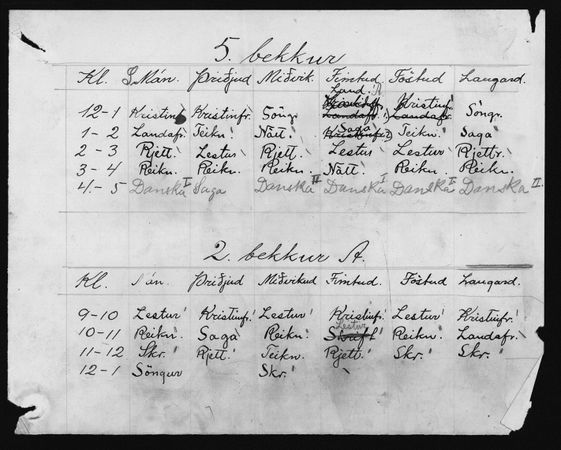 5. bekkur
Kl. Mán. Þriðjud Miðvik. Fimtud. Föstud Laugard.
Land.
12-1 Kristinfr. Söngr Landafr. Kristinfr. Landafr. Söngr.
1-2 Landafr. Teikn. Nátt. Saga Kristinfr. Teikn. Saga
2-3 Rjett. Lestur Rjett. Lestur Lestur Rjettr.
3-4 Reikn. Reikn. Reikn. Nátt. Reikn. Reikn.
4-5 Danska I Saga Danska II Danska I Danska I Danska II.
2. bekkur A.
Kl. Mán. Þriðjud Miðvikud Fimtud. Föstud Laugard.
9-10 Lestur Kristinfr. Lestur Kristinfr. Lestur Kristinfr.
Lestur
10-11 Reikn. Saga Reikn. Skrift Reikn. Landafr.
11-12 Skr. Rjett. Teikn. Rjett. Skr. Skr.
12-1 Söngur Skr.